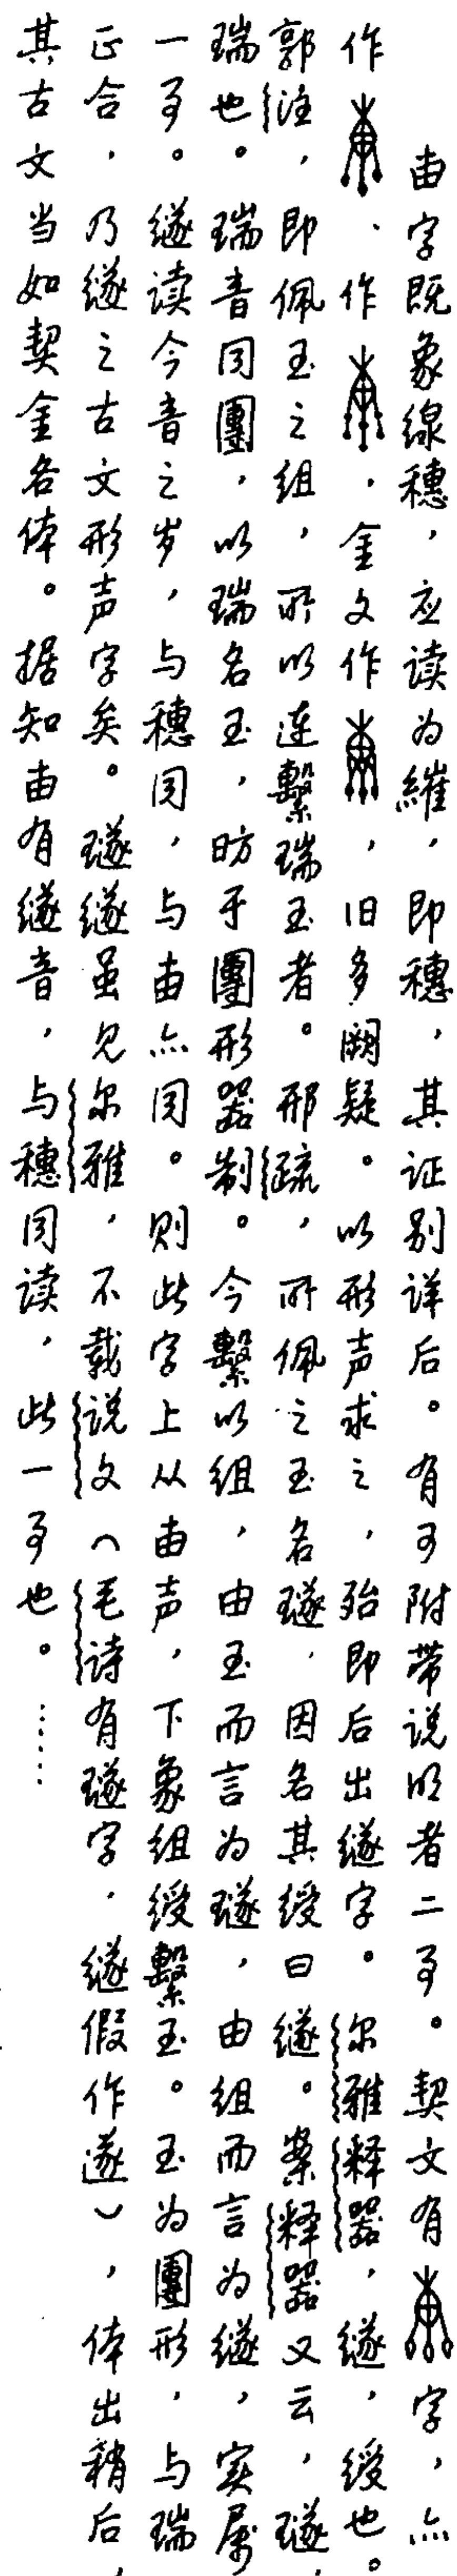 甴字既象線穗，应读为繀，即穗，其证别详后。有可附带说明者二事。契文有字，亦
作、作，金文作，旧多阙疑。以形声求之，殆即后出繸字。尔雅释器，繸，绶也。
郭注，即佩玉之组，所以连繫瑞玉者。邢疏，所佩之玉名璲，因名其绶曰繸。案释器又云，璲，
瑞也。瑞音同團，以瑞名玉，昉于團形器制。今繫以组，由玉而言为璲，由组而言为繸，实属
一事。繸读今音之岁，与穗同，与甴亦同。则此字上从甴声，下象组绶繫玉。玉为團形，与瑞
正合，乃繸之古文形声字矣。璲繸虽见尔雅，不载说文（毛诗有璲字，繸假作遂），体出稍后，
其古文当如契金各体。据知甴有繸音，与穗同读，此一事也。……